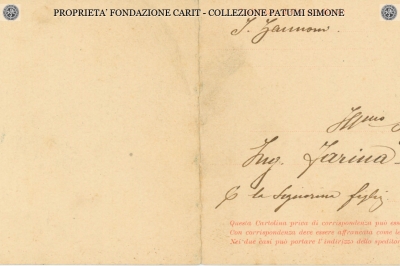 PROPRIETA' FONDAZIONE CARIT - COLLEZIONE PATUMI SIMONE
Ill.mo
Ing. Farina
E le Signorine figlie
Questa Cartolina priva di corrispondenza può ess
Con corrispondenza deve essere affrancata come le
Nei due casi può portare l'indirizzo dello spedito